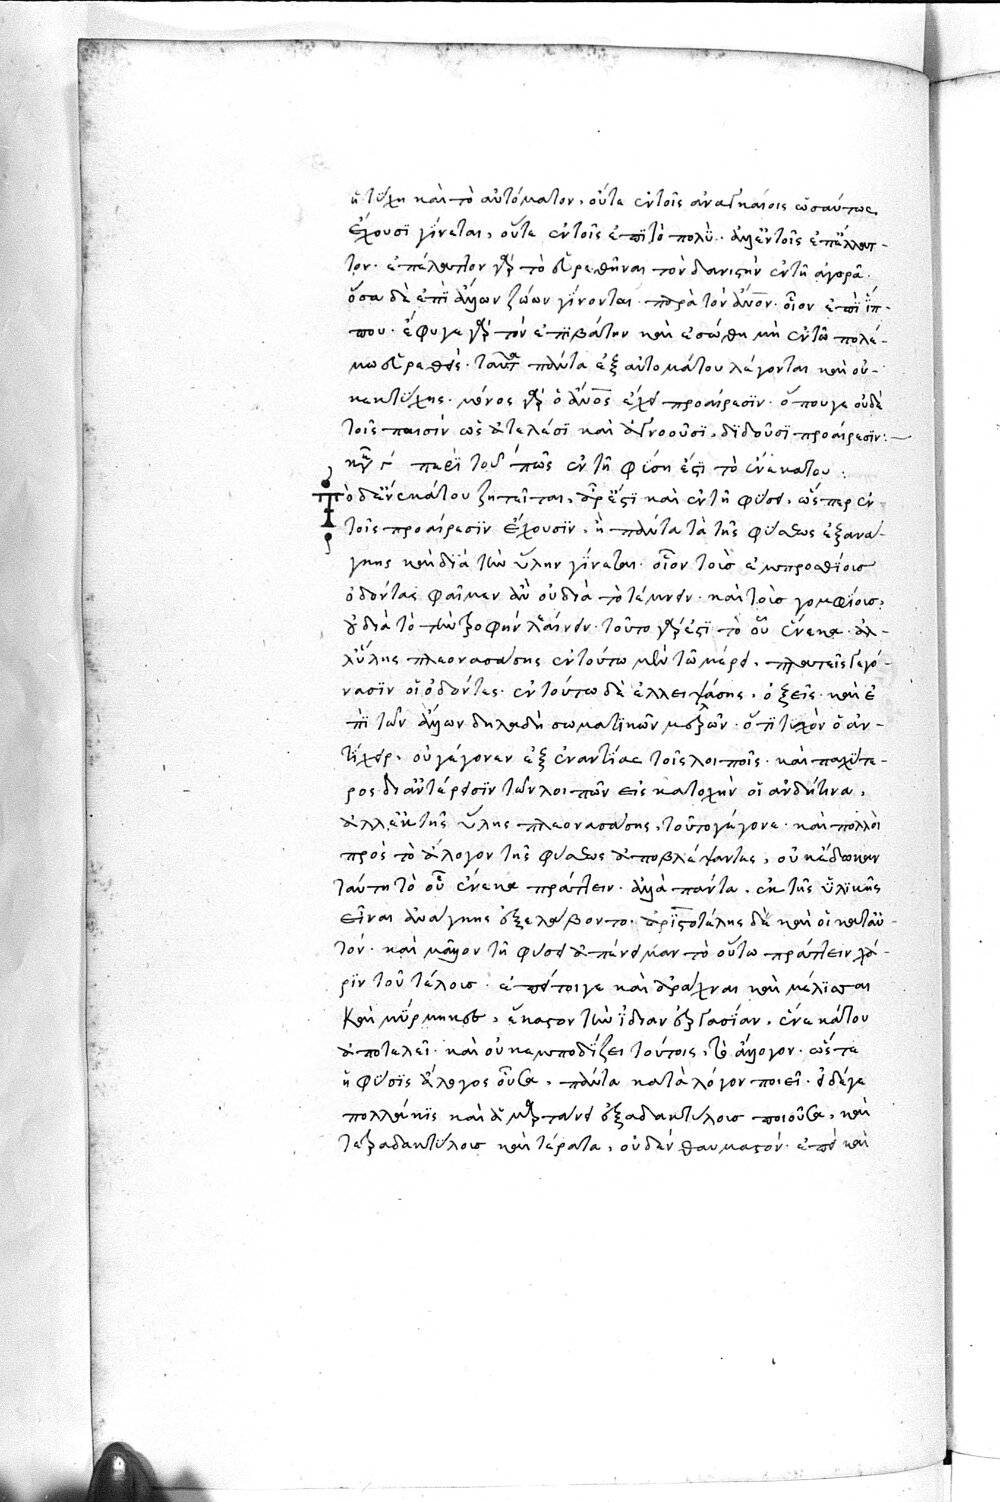 ἡ τύχη καὶ τὸ αὐτόματον, οὔτε ἐν τοῖς ἀναγκαίοις ὡσαύτως
ἔχουσϊ γίνεται, οὔτε ἐν τοῖς ἐπϊτὸ πολὺ· ἀλλ' ἐν τοῖς ἐπ' ἔλλατ-
τον· ἐπέλαττον γὰρ τὸ εὑρεθῆναι τὸν δανιστὴν ἐν τῆ ἀγορᾶ·
ὅσα δὲ ἐπὶ ἄλλων ζώων γίνονται παρὰ τὸν ἄνον· οἷον ἐπϊ ἵπ-
που· ἔφυγε γὰρ τὸν ἐπϊβάτην καὶ ἐσώθη μὴ ἐν τῶ πολέ-
μω εὑρεθεὶς· ταῦτα πάντα ἐξ αὐτομάτου λέγονται καὶ οὐ-
κ ἐκ τύχης· μόνος γὰρ ὁ ἄνος ἔχει προαίρεσϊν· ὅπουγε οὐδὲ
τοῖς παισὶν ὡς ἀτελέσϊ καὶ ἀγνοοῦσϊ, δϊδοῦσϊ προαίρεσϊν:
περὶ τοῦ πῶς ἐν τῆ φύσει ἐστὶ τὸ ἕνεκά του:
Τὸ δ' ἕνεκά του ζητεῖται, ἆρ' ἔστϊ καὶ ἐν τῆ φύσει, ὥσπερ ἐν
τοῖς προαίρεσϊν ἔχουσϊν, ἢ πάντα τὰ τῆς φύσεως ἐξ ἀνά-
γκης καὶ διὰ τὴν ὕλην γίνεται· οἷον τοὺς ἐμπροσθίους
ὀδόντας φαῖμεν ἂν οὐ διὰ τὸ τέμνειν· καὶ τοὺς γομφίους,
οὐ διὰ τὸ τὴν τροφὴν λεαίνειν· τοῦτο γὰρ ἐστϊ τὸ οὗ ἕνεκα· ἀλ-
λ' ὕλης πλεονασάσης ἐν τούτω μὲν τῶ μέρει, πλατεῖς γεγό-
νασϊν οἱ ὀδόντες· ἐν τούτω δὲ ἐλλειψάσης, ὀξεῖς· καὶ ἐ-
πὶ τῶν ἄλλων δηλαδὴ σωματϊκῶν μερῶν· ὅτϊ τυχὸν ὁ ἀν-
τίχειρ, οὐ γέγονεν ἐξ ἐναντίας τοῖς λοιποῖς· καὶ παχύτε-
ρος δι' ἀντέρεισϊν τῶν λοιπῶν εἰς κατοχὴν οἱ ἀνδήτινα,
ἀλλ' ἐκ τῆς ὕλης πλεονασάσης, τοῦτο γέγονε· καὶ πολλοὶ
πρὸς τὸ ἄλογον τῆς φύσεως ἀποβλέψαντες, οὐκ ἔδωκαν
ταύτη τὸ οὗ ἕνεκα πράττειν· ἀλλὰ πάντα, ἐκ τῆς ὑλϊκῆς
εἶναι ἀνάγκης ἐξελάβοντο· ἀρϊστοτέλης δὲ καὶ οἱ κατ' αὐ-
τόν· καὶ μᾶλλον τῆ φύσει ἀπένειμαν τὸ οὕτω πράττειν χά-
ρϊν τοῦ τέλους· ἐπεί τοιγε καὶ ἀράχναι καὶ μέλϊσσαι
καὶ μύρμηκες, ἕκαστον τὴν ἰδίαν ἐργασίαν, ἕνεκά του
ἀποτελεῖ· καὶ οὐκ ἐμποδίζει τούτοις, τὸ ἄλογον· ὥστε
ἡ φύσϊς ἄλογος οὖσα, πάντα κατὰ λόγον ποιεῖ· εἰ δέ γε
πολλάκϊς καὶ ἁμαρτάνει ἑξαδακτύλους ποιοῦσα, καὶ
τετραδακτύλους καὶ τέρατα, οὐδὲν θαυμαστόν· ἐπεὶ καὶ